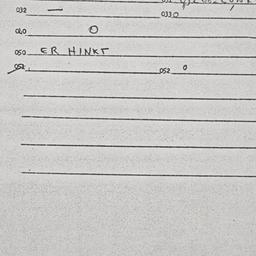 032 —
0330
040 O
050 ER HINKT
052 052 0